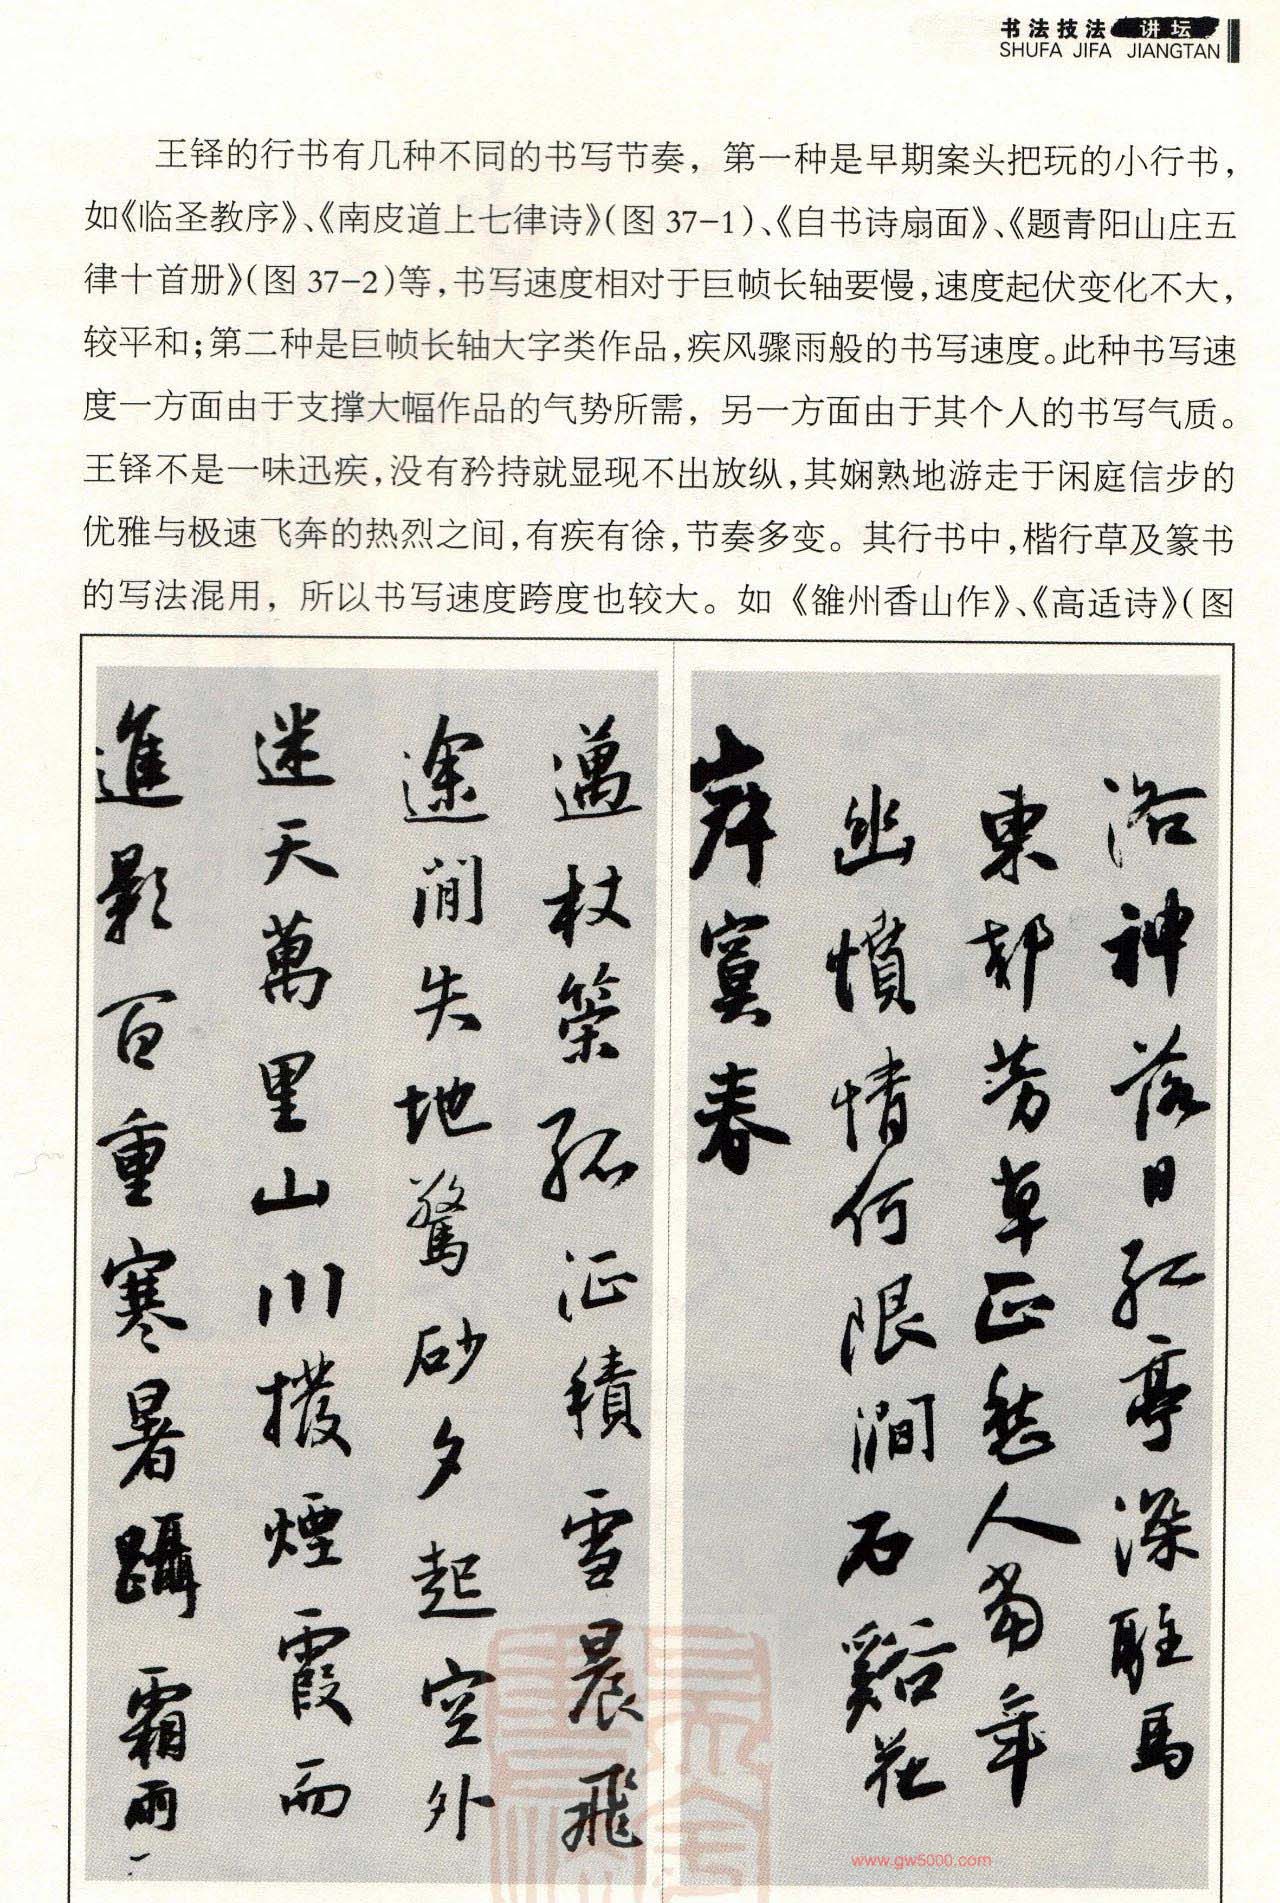 书法技法 讲坛
SHUFA JIFA JIANGTAN
王铎的行书有几种不同的书写节奏，第一种是早期案头把玩的小行书，
如《临圣教序》、《南皮道上七律诗》（图 37-1）、《自书诗扇面》、《题青阳山庄五
律十首册》（图 37-2）等，书写速度相对于巨帧长轴要慢，速度起伏变化不大，
较平和；第二种是巨帧长轴大字类作品，疾风骤雨般的书写速度。此种书写速
度一方面由于支撑大幅作品的气势所需，另一方面由于其个人的书写气质。
王铎不是一味迅疾，没有矜持就显现不出放纵，其娴熟地游走于闲庭信步的
优雅与极速飞奔的热烈之间，有疾有徐，节奏多变。其行书中，楷行草及篆书
的写法混用，所以书写速度跨度也较大。如《雒州香山作》、《高适诗》（图
洛神落日紅亭深駐馬
東郊芳草正愁人當年
幽憤情何限澗石谿花
岸冥春
邁杖策孤征積雪晨飛
途間失地驚砂夕起空外
迷天萬里山川撥煙霞而
進影百重寒暑躡霜雨
www.gw5000.com